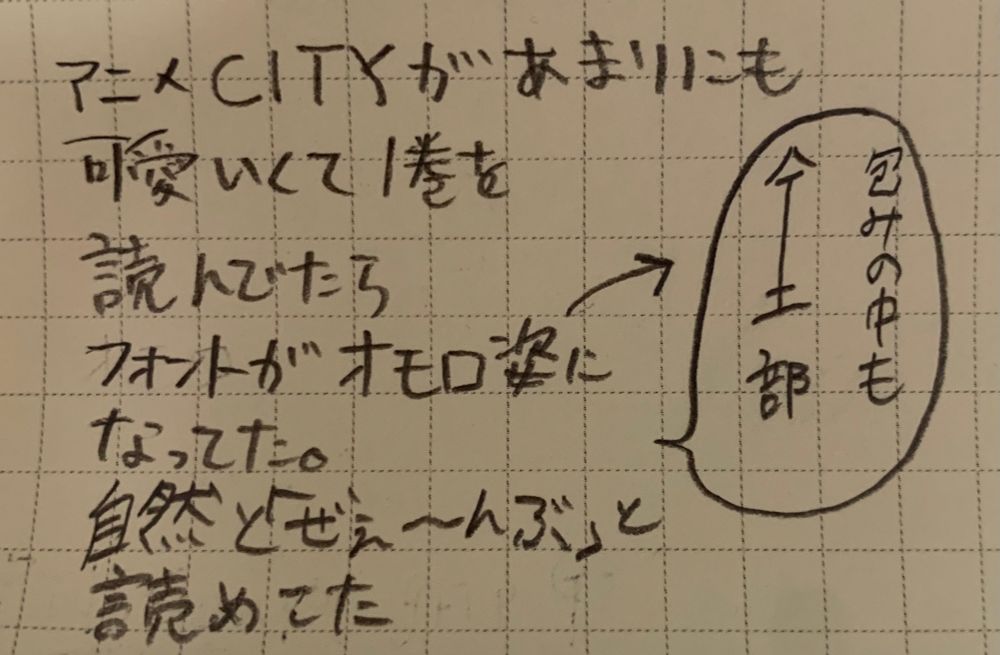 アニメCITYがあまりにも
可愛いくて1巻を
読んでたら
フォントがオモロ姿に
なってた。
自然と「ぜぇ〜んぶ」と
読めてた
包みの中も
今｜土部